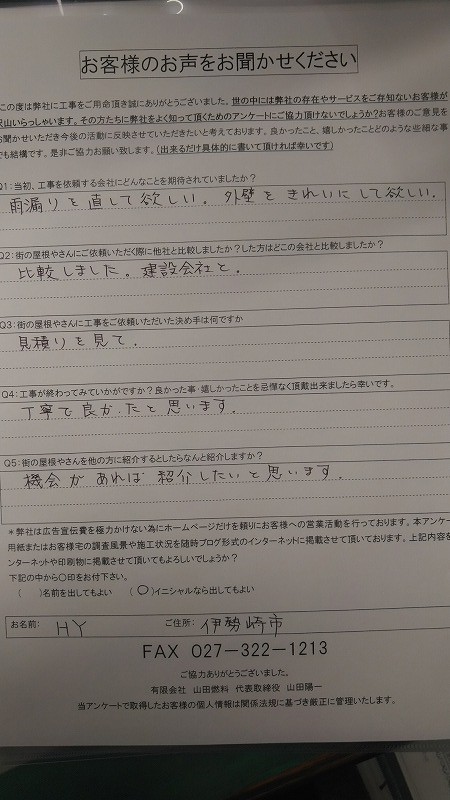 お客様のお声をお聞かせください
この度は弊社に工事をご用命頂き誠にありがとうございました。世の中には弊社の存在やサービスをご存知ないお客様が
沢山いらっしゃいます。その方たちに弊社をよく知って頂くためのアンケートにご協力頂けないでしょうか?お客様のご意見を
お聞かせいただき今後の活動に反映させていただきたいと考えております。良かったこと、嬉しかったことどのような些細な事
でも結構です。是非ご協力お願い致します。(出来るだけ具体的に書いて頂ければ幸いです)
Q1:当初、工事を依頼する会社にどんなことを期待されていましたか?
雨漏りを直して欲しい。外壁をきれいにして欲しい。
Q2:街の屋根やさんにご依頼いただく際に他社と比較しましたか?した方はどこの会社と比較しましたか?
比較しました。建設会社と。
Q3:街の屋根やさんに工事をご依頼いただいた決め手は何ですか
見積りを見て。
Q4:工事が終わってみていかがですか?良かった事・嬉しかったことを忌憚なく頂戴出来ましたら幸いです。
丁寧で良かったと思います。
Q5:街の屋根やさんを他の方に紹介するとしたらなんと紹介しますか?
機会があれば紹介したいと思います。
*弊社は広告宣伝費を極力かけない為にホームページだけを頼りにお客様への営業活動を行っております。本アンケート
用紙またはお客様宅の調査風景や施工状況を随時ブログ形式のインターネットに掲載させて頂いております。上記内容を
インターネットや印刷物に掲載させて頂いてもよろしいでしょうか?
下記の中から○印をお付下さい。
( )名前を出してもよい (○)イニシャルなら出してもよい
お名前: HY ご住所: 伊勢崎市
FAX 027-322-1213
ご協力ありがとうございました。
有限会社 山田燃料 代表取締役 山田陽一
当アンケートで取得したお客様の個人情報は関係法規に基づき厳正に管理いたします。